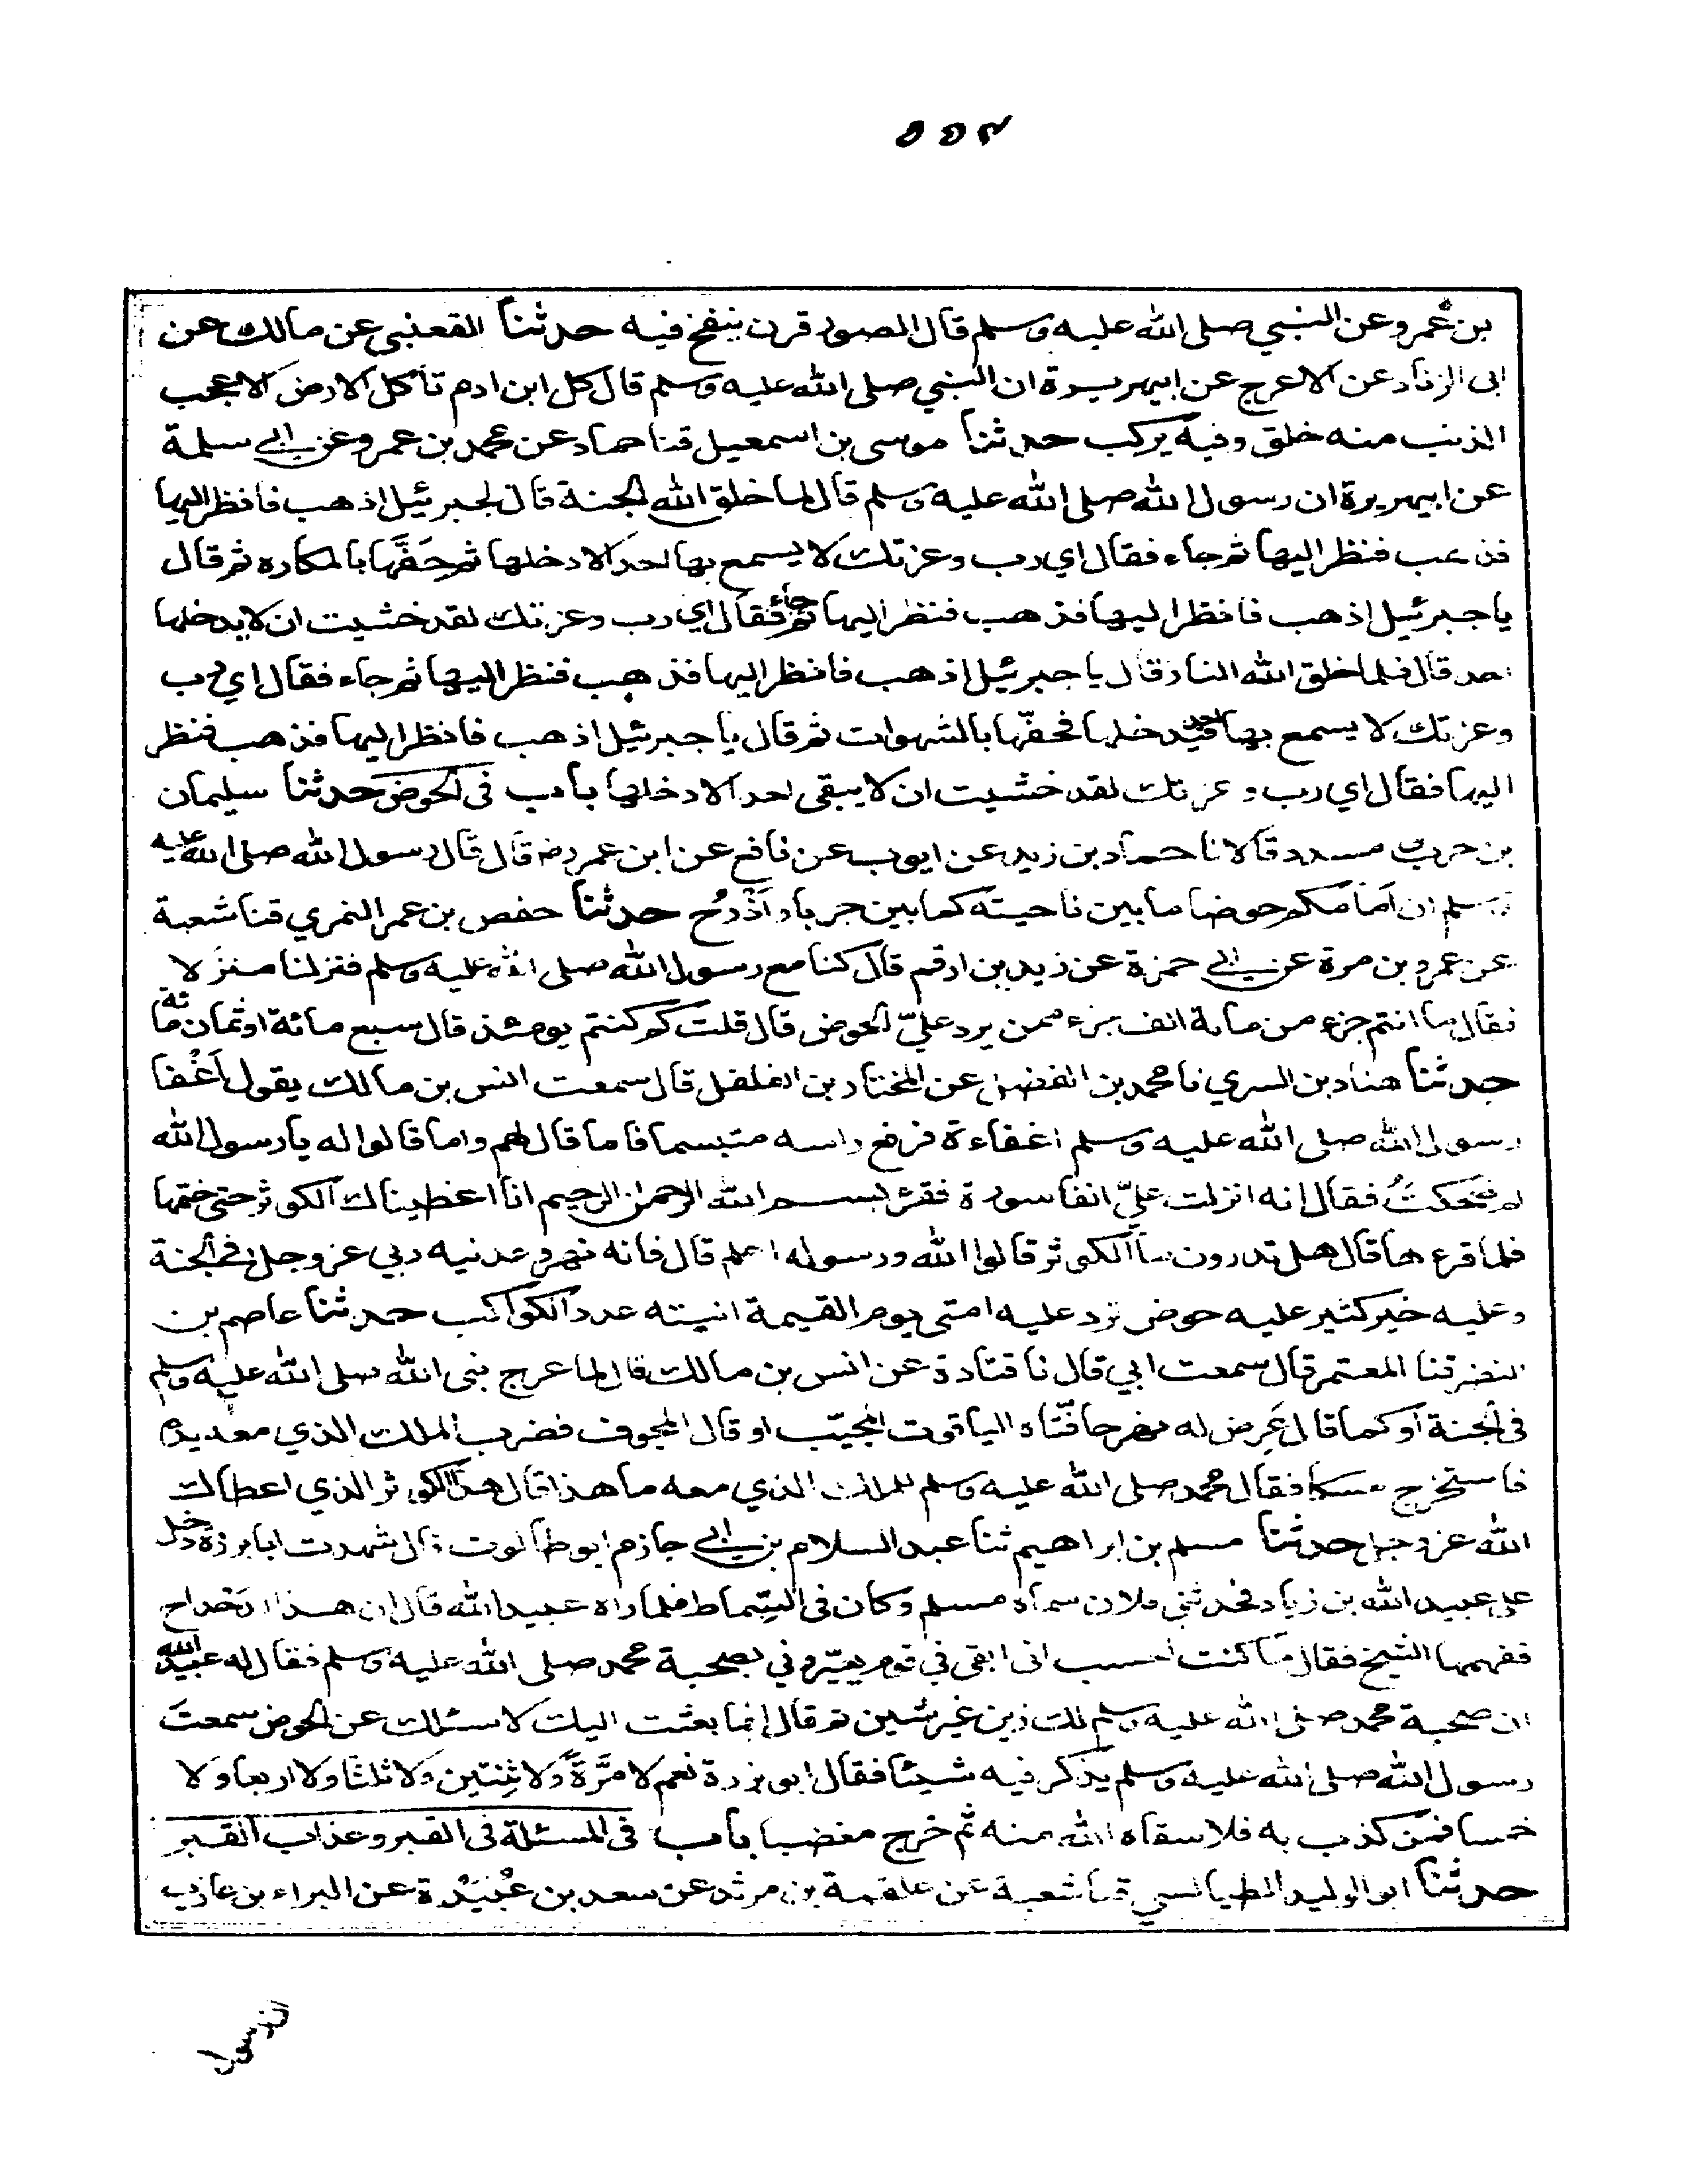 بن عمرو عن النبي صلى الله عليه وسلم قال الصور قرن ينفخ فيه حدثنا القعنبي عن مالك عن
ابى الزناد عن الاعرج عن ابيهريرة ان النبي صلى الله عليه وسلم قال كل ابن ادم تأكل الارض الا عجب
الذنب منه خلق وفيه يركب حدثنا موسى بن اسمعيل قنا حماد عن محمد بن عمرو عن ابي سلمة
عن ابيهريرة ان رسول الله صلى الله عليه وسلم قال لما خلق الله الجنة قال لجبرئيل اذهب فانظر اليها
فذهب فنظر اليها ثم جاء فقال اي رب وعزتك لا يسمع بها احد الا دخلها ثم حَفَّها بالمكاره ثم قال
يا جبرئيل اذهب فانظر اليها فذهب فنظر اليها ثم جاء فقال اي رب وعزتك لقد خشيت ان لا يدخلها
احد قال فلما خلق الله النار قال يا جبرئيل اذهب فانظر اليها فذهب فنظر اليها ثم جاء فقال اي رب
وعزتك لا يسمع بها احد فيدخلها فحفّها بالشهوات ثم قال يا جبرئيل اذهب فانظر اليها فذهب فنظر
اليها فقال اي رب وعزتك لقد خشيت ان لا يبقى احد الا دخلها باب فى الحوض حدثنا سليمان
بن حرب ومسدد قالا نا حماد بن زيد عن ايوب عن نافع عن ابن عمر رضه قال قال رسول الله صلى الله عليه
وسلم ان اَمامكم حوضا ما بين ناحيته كما بين جرباء واَذْرُح حدثنا حفص بن عمر النمري قنا شعبة
عن عمرو بن مرة عن ابي حمزة عن زيد بن ارقم قال كنا مع رسول الله صلى الله عليه وسلم فنزلنا منزلا
فقال ما انتم جزء من ماية الف جزء ممن يرد عليّ الحوض قال قلت كم كنتم يومئذ قال سبع مائة او ثمان مائة
حدثنا هناد بن السري نا محمد بن الفضيل عن المختار بن الفلفل قال سمعت انس بن مالك يقول اَغْفا
رسول الله صلى الله عليه وسلم اغفاءة فرفع راسه متبسما فاما قال لهم واما قالوا له يا رسول الله
لم ضحكتُ فقال انه انزلت عليّ انفا سورة فقرئ بسم الله الرحمن الرحيم انا اعطيناك الكوثر حتى ختمها
فلما قرءها قال هل تدرون ما الكوثر قالوا الله ورسوله اعلم قال فانه نهر وعدنيه ربي عز وجل في الجنة
وعليه خير كثير عليه حوض ترد عليه امتى يوم القيمة انيته عدد الكواكب حدثنا عاصم بن
النضر قنا المعتمر قال سمعت ابي قال نا قتادة عن انس بن مالك قال لما عرج بنبى الله صلى الله عليه وسلم
فى الجنة او كما قال عُرِض له نهر حافّتاه الياقوت المجيّب او قال المجوف فضرب الملك الذي معه يده
فاستخرج مسكا فقال محمد صلى الله عليه وسلم للملك الذي معه ما هذا قال هذا الكوثر الذي اعطاك
الله عز وجل حدثنا مسلم بن ابراهيم ثنا عبد السلام بن ابي حازم ابو طالوت قال شهدت ابا برزة دخل
على عبيد الله بن زياد فحدثني فلان سماه مسلم وكان فى السِّماط فلما راه عبيد الله قال ان هذا الدَحْداح
ففهمها الشيخ فقال ما كنت احسب انى ابقى في قوم يعيّروني بصحبة محمد صلى الله عليه وسلم فقال له عبيد الله
ان صحبة محمد صلى الله عليه وسلم لك زين غير شين ثم قال إنما بعثت اليك لاسئلك عن الحوض سمعتَ
رسول الله صلى الله عليه وسلم يذكر فيه شيئا فقال ابو برزة نعم لا مَرَّةً ولا ثِنتين ولا ثلثا ولا اربعا ولا
خمسا فمن كذب به فلا سقاه الله منه ثم خرج مغضبا باب فى المسئلة فى القبر وعذاب القبر
حدثنا ابو الوليد الطيالسي قنا شعبة عن علقمة بن مرثد عن سعد بن عُبَيْدة عن البراء بن عازب
ان رسول